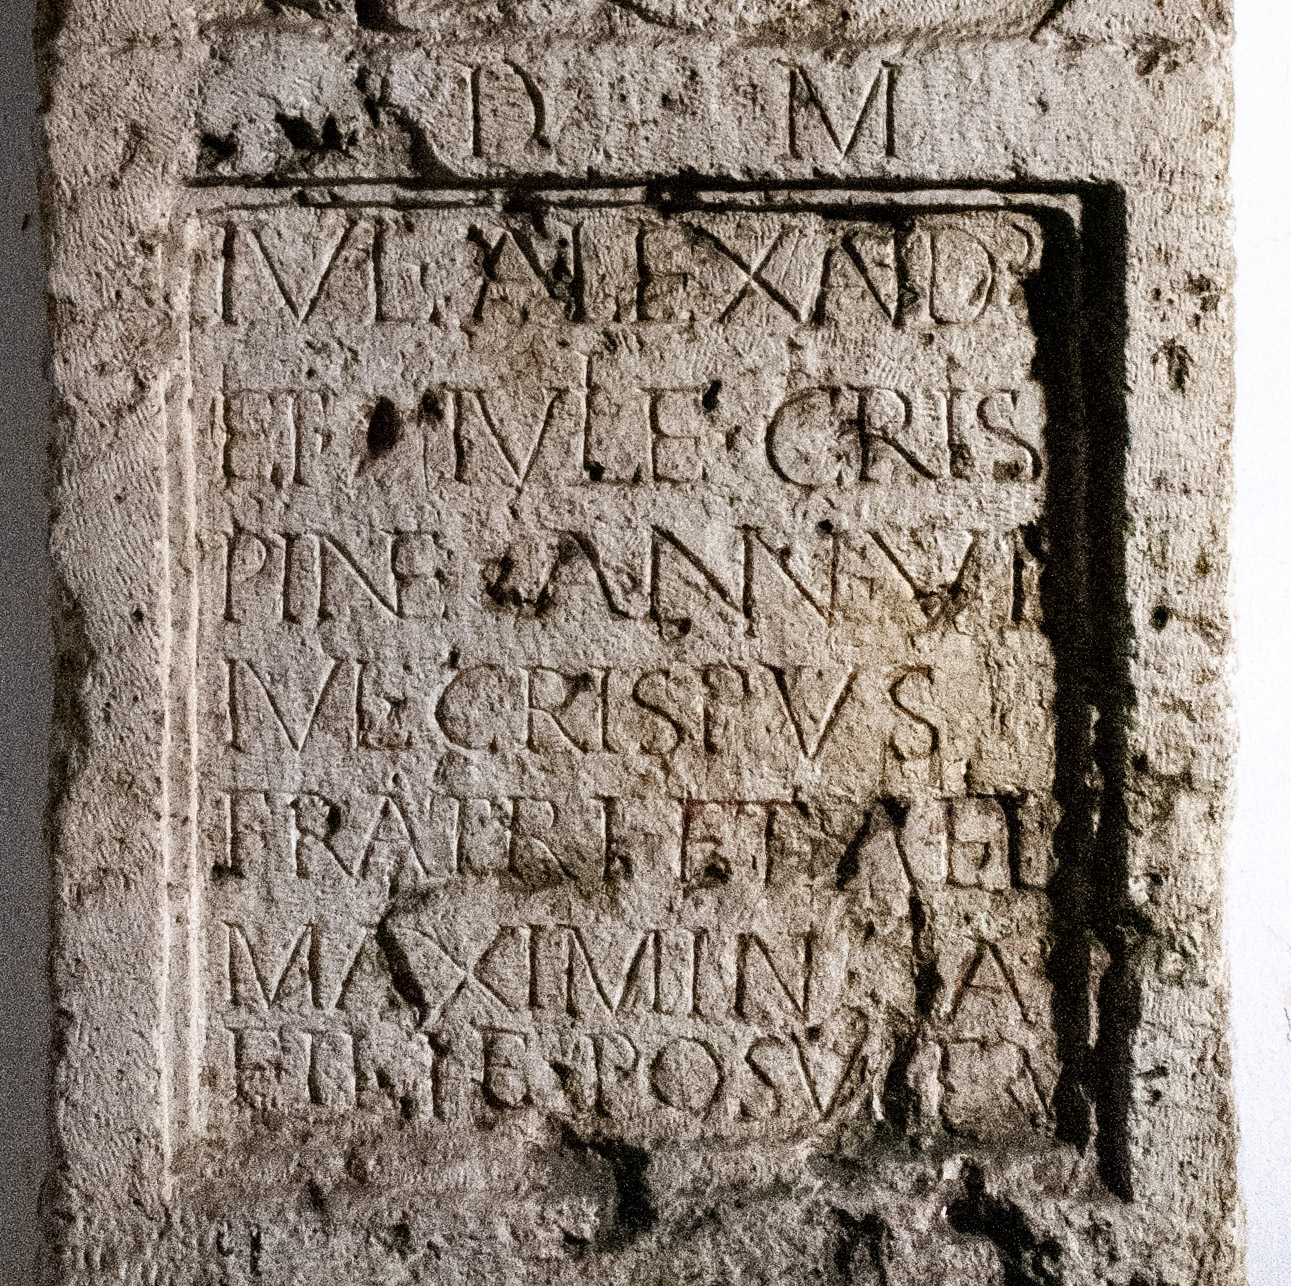 D M
IVL ALEXAND
ET IVLE CRIS
PINE ANN VI
IVL CRISPVS
FRATRI ET AEL
MAXIMINA
FILIE POSV